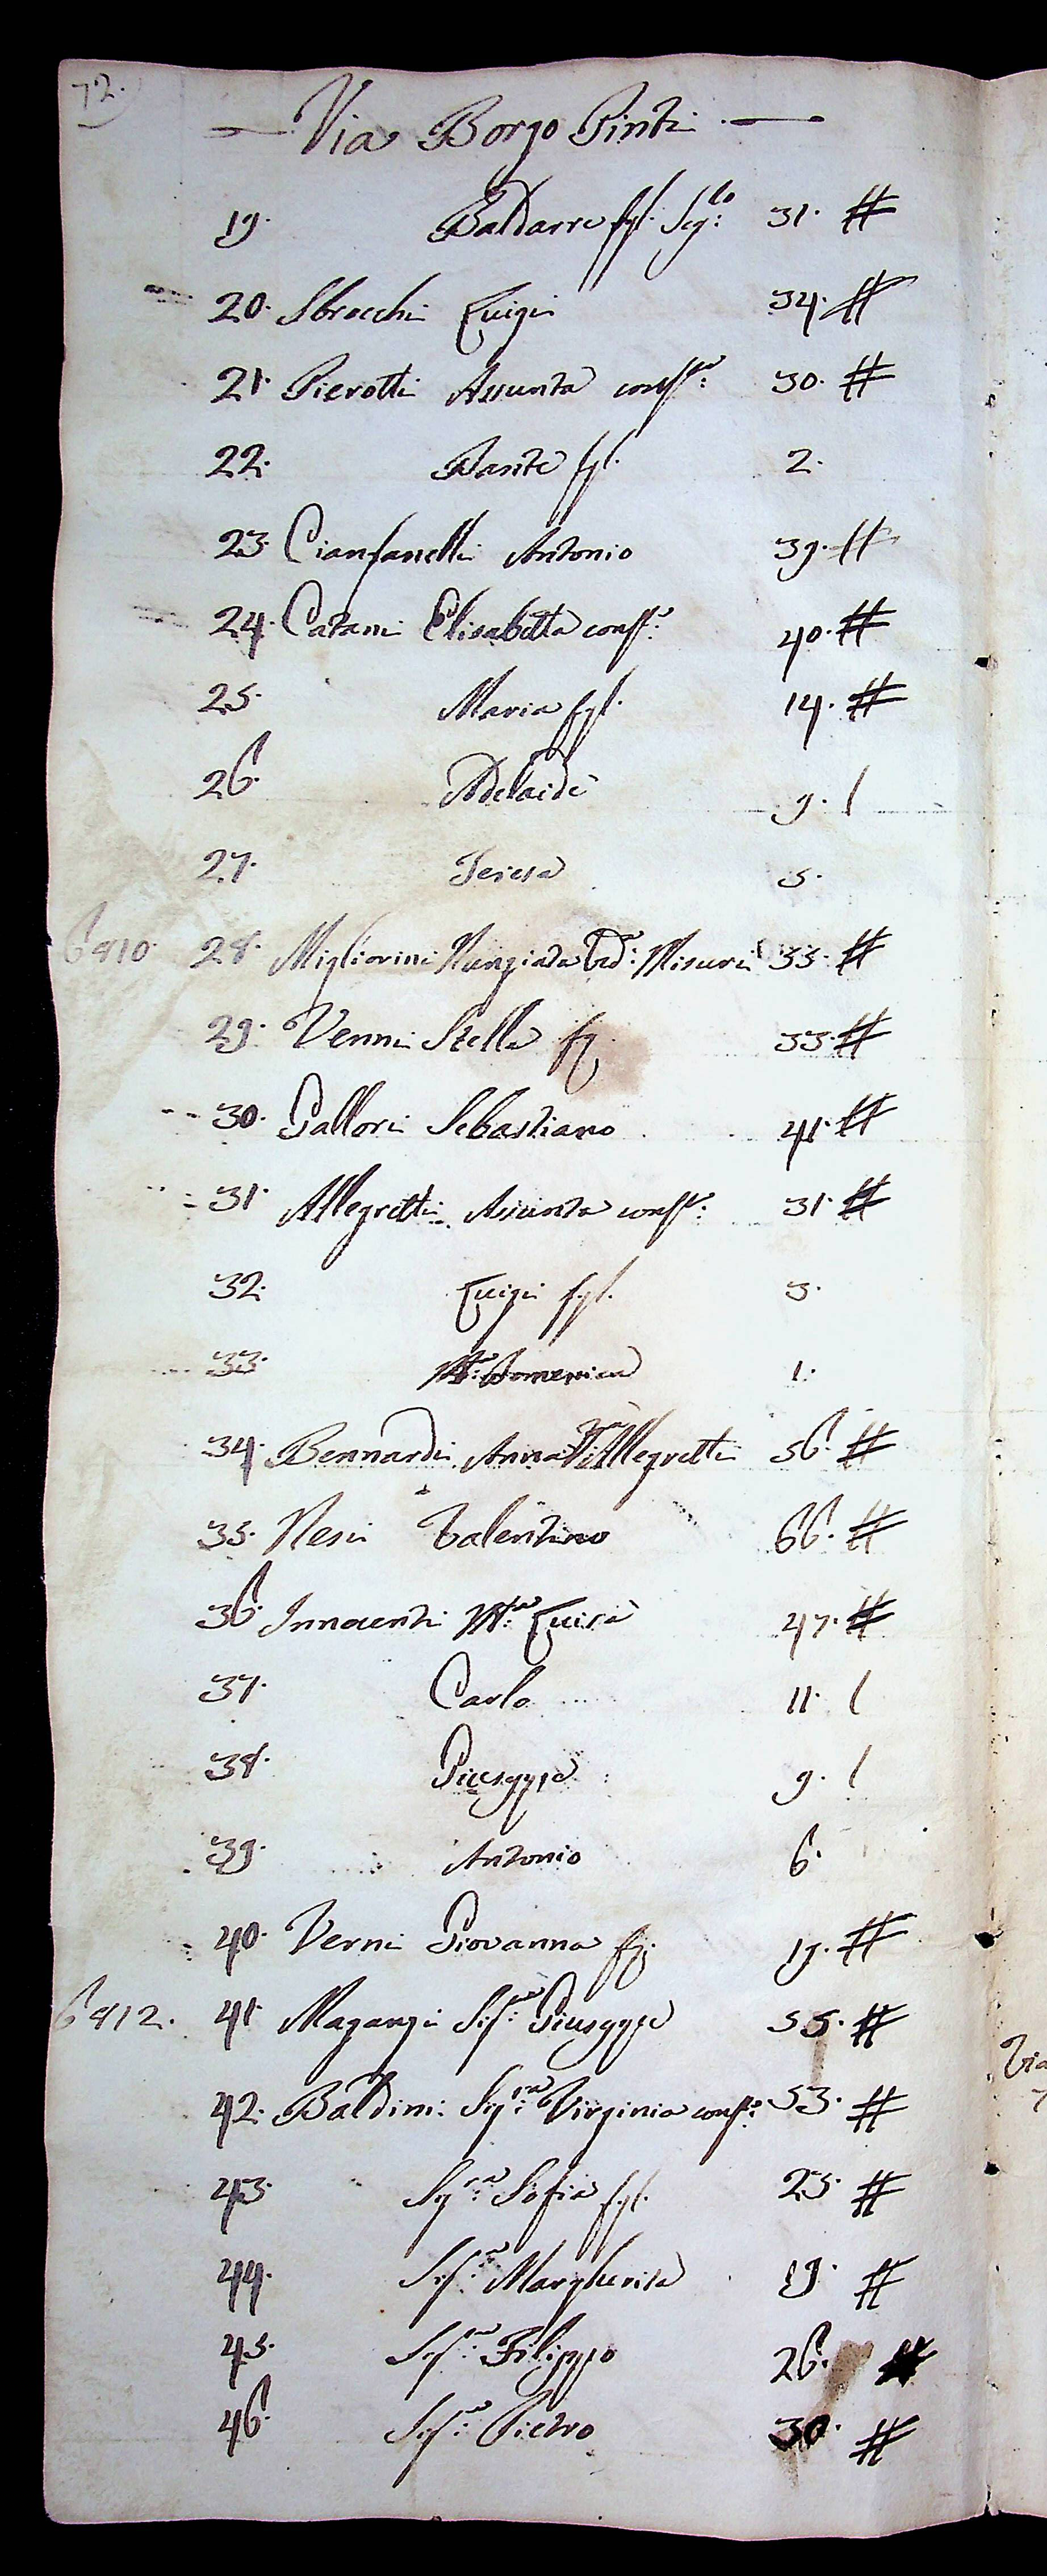 72.
Via Borgo Pinti
19. Baldarre fgl. Seg:to 31. #
20. Sbrocchi Luigi 34. #
21. Pierotti Assunta conss:a 30. #
22. Dante fgl. 2.
23. Cianfanelli Antonio 39. #
24. Catani Elisabetta conss:a 40. #
25. Maria fgl. 14. #
26. Adelaide 9. /
27. Teresa 5.
6410. 28. Migliorini Nunziata Vd:a Misuri 33. #
29. Venni Stella fg. 33. #
30. Gallori Sebastiano 41. #
31. Allegretti Assunta conss:a 31. #
32. Luigi fgl. 3.
33. M:a Domenica 1.
34. Bennardi Anna V:va Allegretti 56. #
35. Nesi Valentino 66. #
36. Innocenti M:a Luisa 47. #
37. Carlo 11. /
38. Giuseppe 9. /
39. Antonio 6.
40. Verni Giovanna fg. 19. #
6412. 41. Maganzi Sig:re Giuseppe 55. #
42. Baldini Sig:ra Virginia conss:a 53. #
43. Sig:ra Sofia fgl. 23. #
44. Sig:ra Margherita 19. #
45. Sig:re Filippo 26. #
46. Sig:re Pietro 30. #
Via